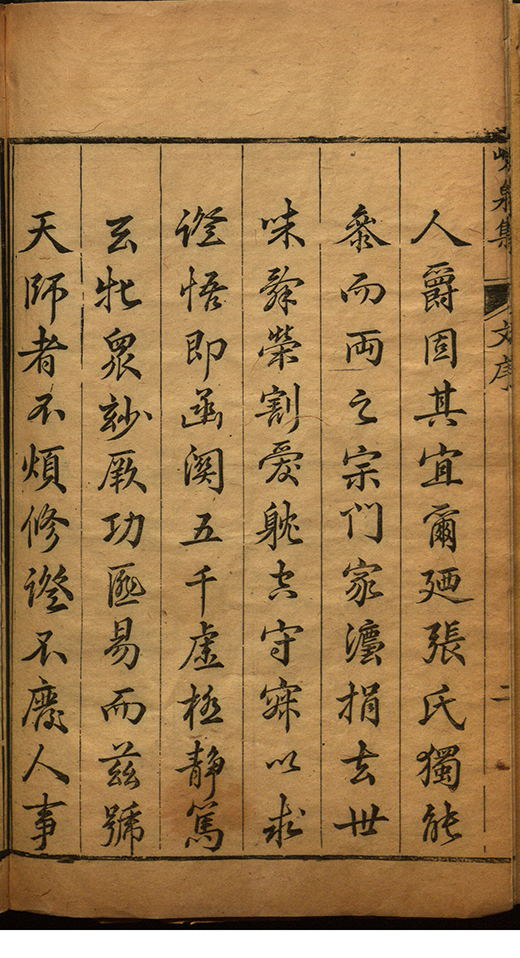 峴泉集
文序
二
人爵固其宜爾廼張氏獨能
叅而両之宗門家灋捐去世
味辭榮割愛躭空守寂以求
證悟即函関五千虛極静篤
玄牝衆玅厥功匪易而茲號
天師者不煩修證不廢人事